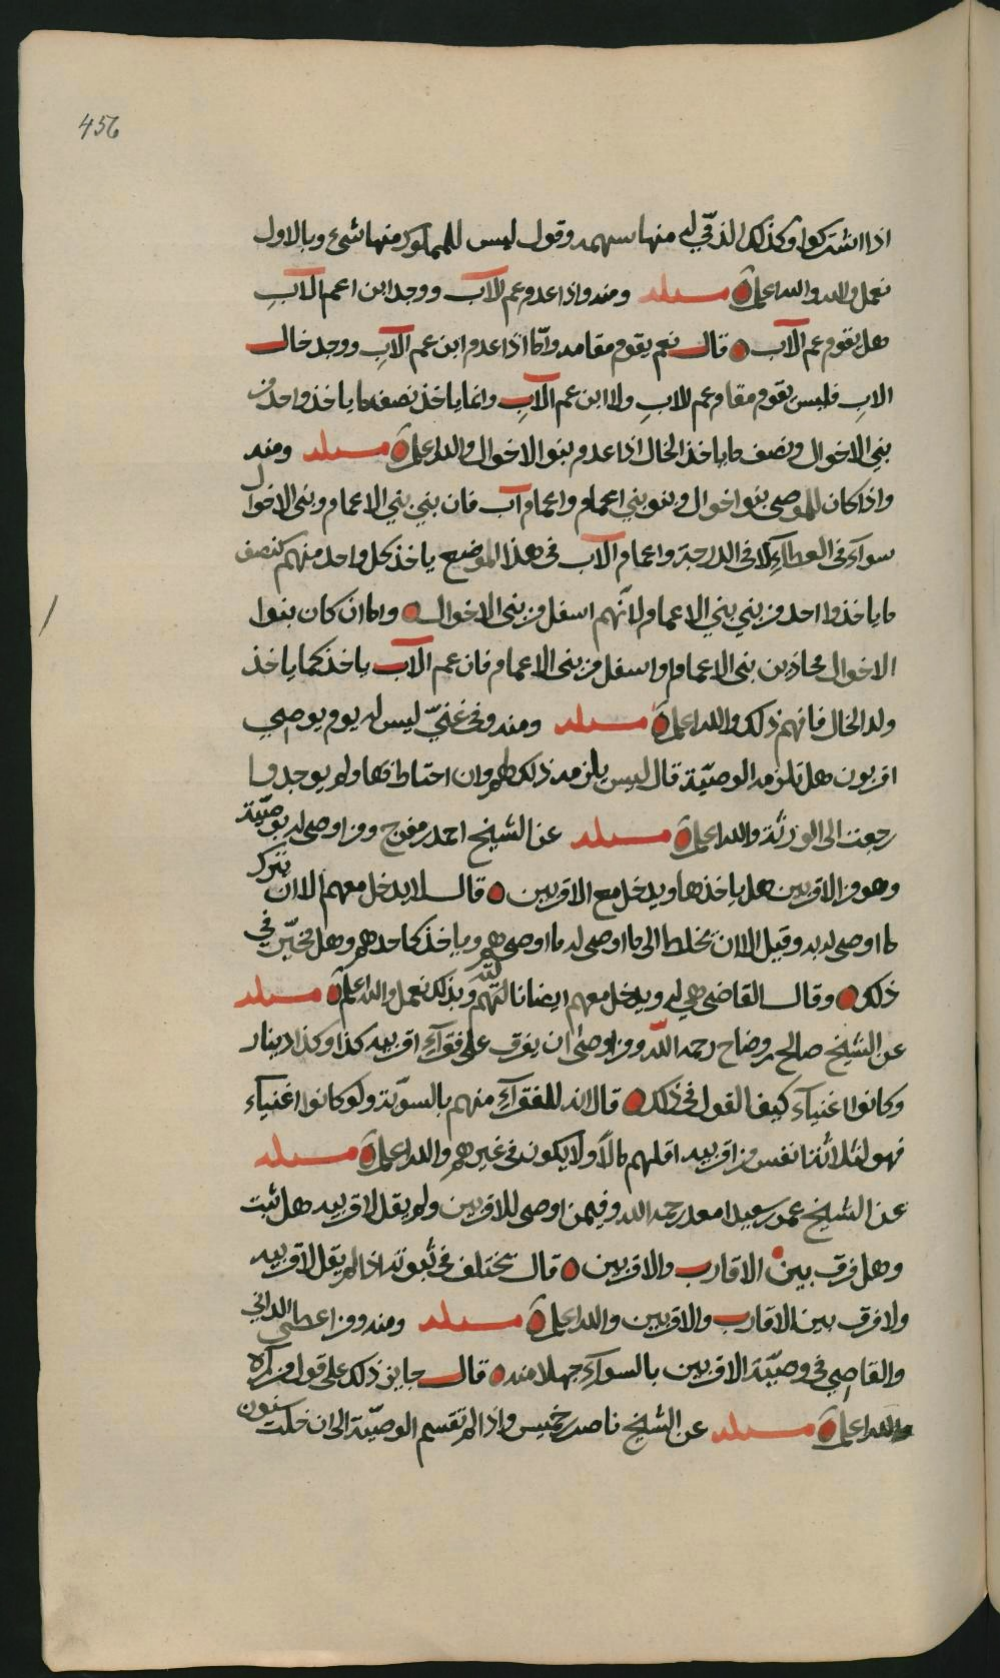 456
اذا اشتركوا وكذلك الذمّي له منها سهمه وقول ليس للمملوك منها شيء وبالاول
نعمل والله اعلم مسئلة ومنه واذا عدم عم الآب ووجد ابن اعم الآب
هل يقوم عم الآب قال نعم يقوم مقامه وامّا اذا عدم ابن عم الآبِ ووجد خال
الابِ فليس يقوم مقام عم الابِ ولا ابن عم الآبِ وانما ياخذ نصف ما ياخذ واحد من
بني الاخوال ونصف ما ياخذ الخال اذا عدم بنو الاخوال والله اعلم مسئلة ومنه
واذا كان للموصي بنوا خوال وبنو بني اعمام واعمام آب فان بني بني الاعمام وبني الاخوال
سوآء في العطاءِ لا في الدرجة واعمام الآب في هذا الموضع ياخذ كل واحد منهم كنصف
ما ياخذ واحد من بني بني الاعمام لانّهم اسفل من بني الاخوال واما ان كان بنوا
الاخوال محاذين بني الاعمام او اسفل من بني الاعمام فان عم الآب ياخذ كما ياخذ
ولد الخال فافهم ذلك والله اعلم مسئلة ومنه وفي غنيّ ليس له يوم يوصي
اقربون هل تلزمه الوصيّة قال ليس يلزمه ذلك لهم وان احتاط فيها ولم يوجدوا
رجعت الى الورثة والله اعلم مسئلة عن الشيخ احمد بن مفرج ومن اوصي له بوصيّة
وهو من الاقربين هل ياخذها ويدخل مع الاقربين قال لا يدخل معهم الا ان يترك
ما اوصي له به وقيل الا ان يخلط الى ما اوصي له ما اوصي لهم وياخذ كاحدهم وهل مخيّر في
ذلك وقال القاضي هي له ويدخل معهم ايضا وبذلك نعمل والله اعلم مسئلة
عن الشيخ صالح بن وضاح رحمه اللّه ومن اوصى ان يفرق على فقرآءِ اقربيه كذا وكذا دينار
وكانوا اغنيآء كيف القول في ذلك قال انه للفقرآءِ منهم بالسويّة ولو كانوا اغنياء
فهو لثلاثة انفس من اقربيه اقلهم مالاً ولا يكون في غيرهم والله اعلم مسئلة
عن الشيخ عمر بن سعيد امعد رحمه الله وفيمن اوصى للاقربين ولم يقل لاقربيه هل ثبت
وهل فرق بين الاقارب والاقربين قال يختلف في ثبوته اذا لم يقل لاقربيه
ولا فرق بين الاقارب والاقربين والله اعلم مسئلة ومنه ومن اعطى الداني
والقاصي في وصيّة الاقربين بالسوآءِ جهلا منه قال جايز ذلك على قول من رآه
والله اعلم مسئلة عن الشيخ ناصر بن خميس واذا لم تقسم الوصيّة الى ان خلت سنون